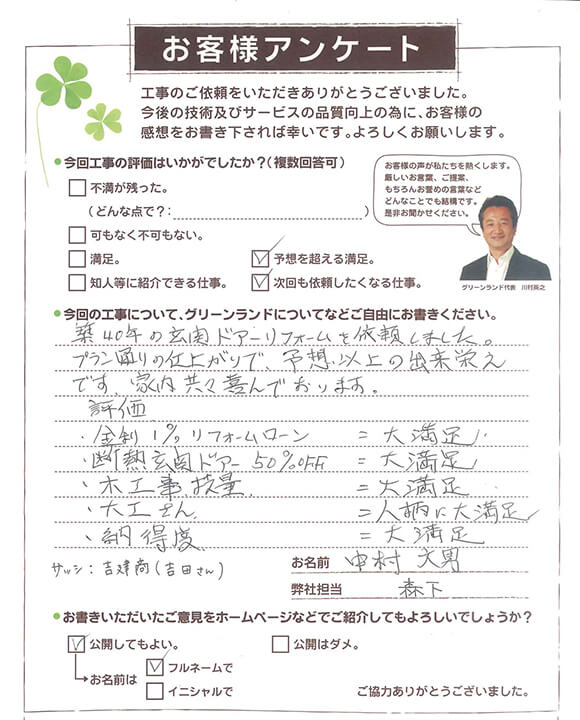 お客様アンケート
工事のご依頼をいただきありがとうございました。
今後の技術及びサービスの品質向上の為に、お客様の
感想をお書き下されば幸いです。よろしくお願いします。
●今回工事の評価はいかがでしたか？（複数回答可）
不満が残った。
（どんな点で？：　）
可もなく不可もない。
満足。
予想を超える満足。
知人等に紹介できる仕事。
次回も依頼したくなる仕事。
お客様の声が私たちを熱くします。
厳しいお言葉、ご提案、
もちろんお誉めの言葉など
どんなことでも結構です。
是非お聞かせください。
グリーンランド代表　川村英之
●今回の工事について、グリーンランドについてなどご自由にお書きください。
築40年の玄関ドアーリフォームを依頼しました。
プラン通りの仕上がりで、予想以上の出来栄え
です、家内共々喜んでおります。
評価
・金利1%リフォームローン　=　大満足
・断熱玄関ドアー50%OFF　=　大満足
・木工事技量　=　大満足
・大工さん　=人柄に大満足
・納得度　=　大満足
サッシ：吉建商(吉田さん)
お名前　中村　文男
弊社担当　森下
●お書きいただいたご意見をホームページなどでご紹介してもよろしいでしょうか？
公開してもよい。
公開はダメ。
お名前は
フルネームで
イニシャルで
ご協力ありがとうございました。